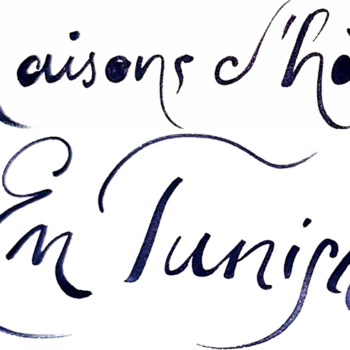 aisons d'hô
En Tunis